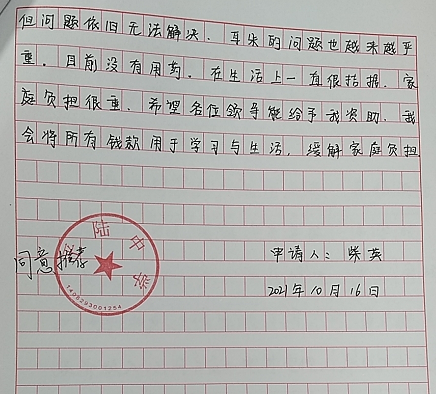 但问题依旧无法解决。耳朵的问题也越来越严
重。目前没有用药。在生活上一直很拮据。家
庭负担很重。希望各位领导能给予我资助。我
会将所有钱款用于学习与生活，缓解家庭负担
同意推荐
中学
申请人：柴英
2021年10月16日